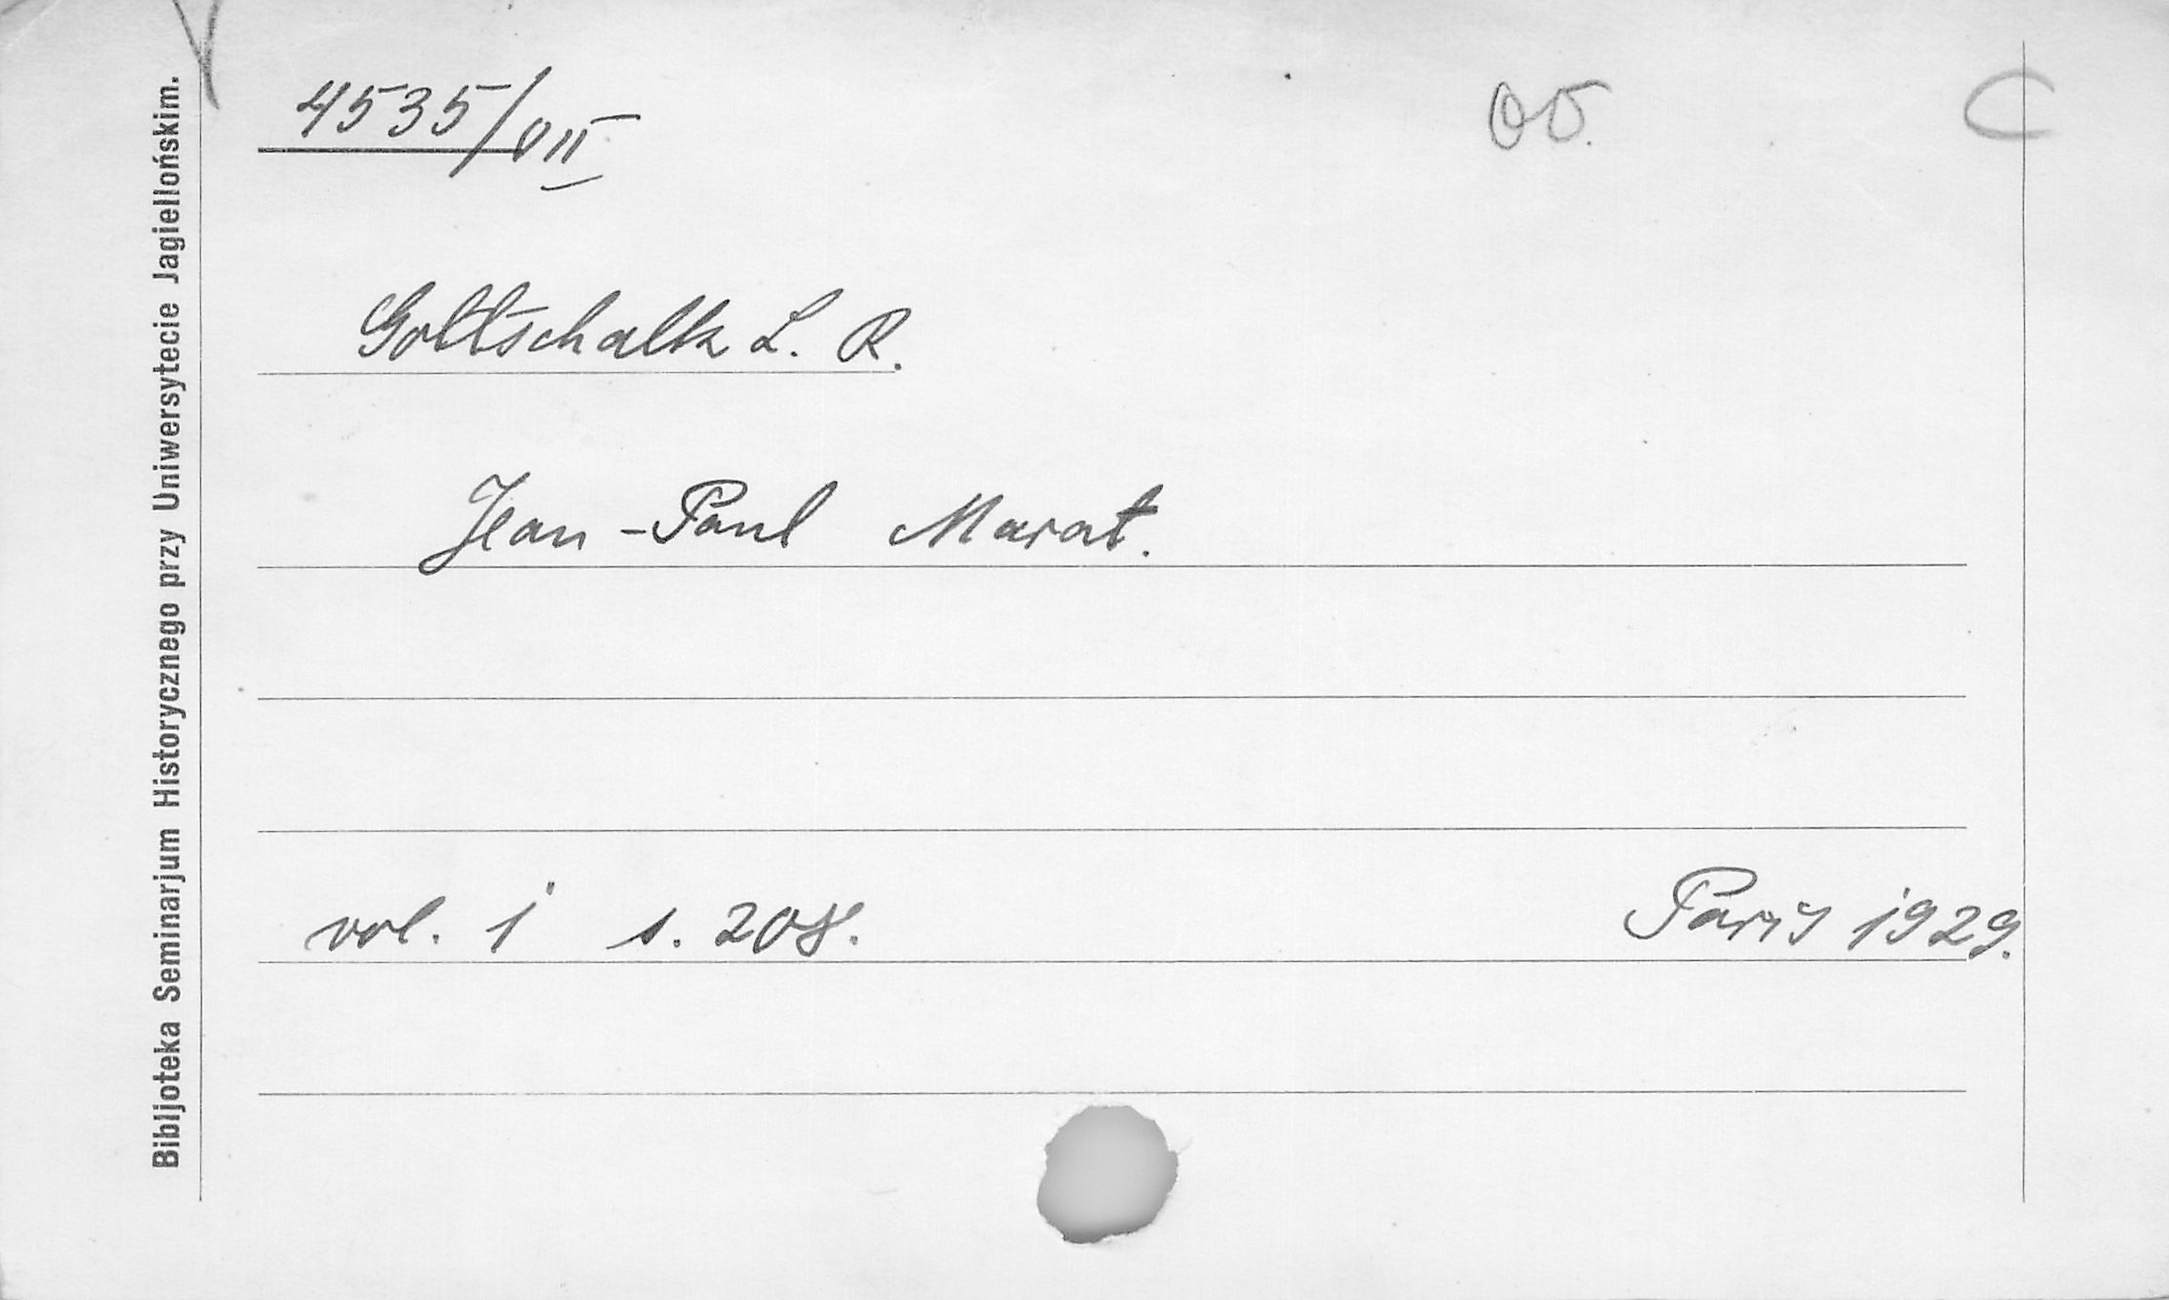 4535/VII
C
Gottschalk L. R.
Jean-Paul Marat.
vol. 1 s. 208. Paris 1929.
Bibljoteka Seminarjum Historycznego przy Uniwersytecie Jagiellońskim.